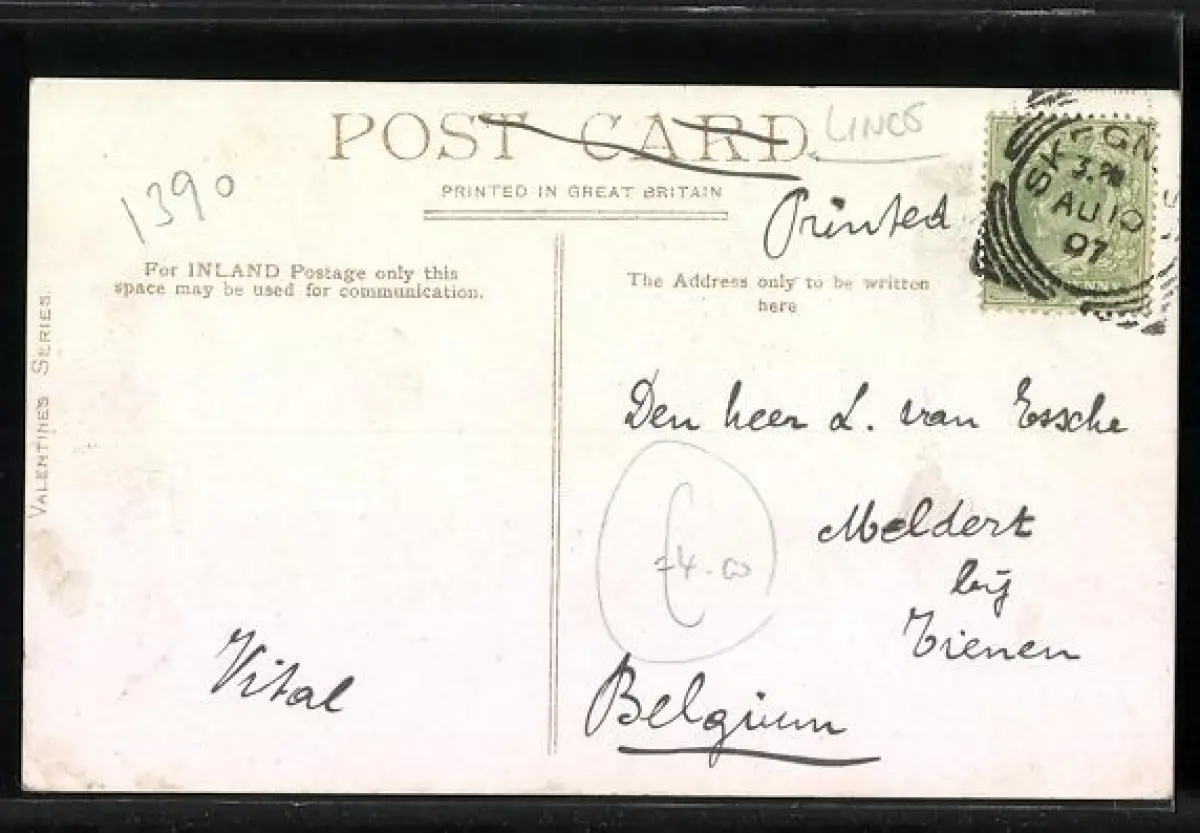 POST CARD
LINCS
PRINTED IN GREAT BRITAIN
1390
Printed
SKEGN
AU 10
07
For INLAND Postage only this
space may be used for communication.
The Address only to be written
here
VALENTINE'S SERIES.
Den heer L. van Essche
Meldert
bij
Tienen
Belgium
£4.00
Vital